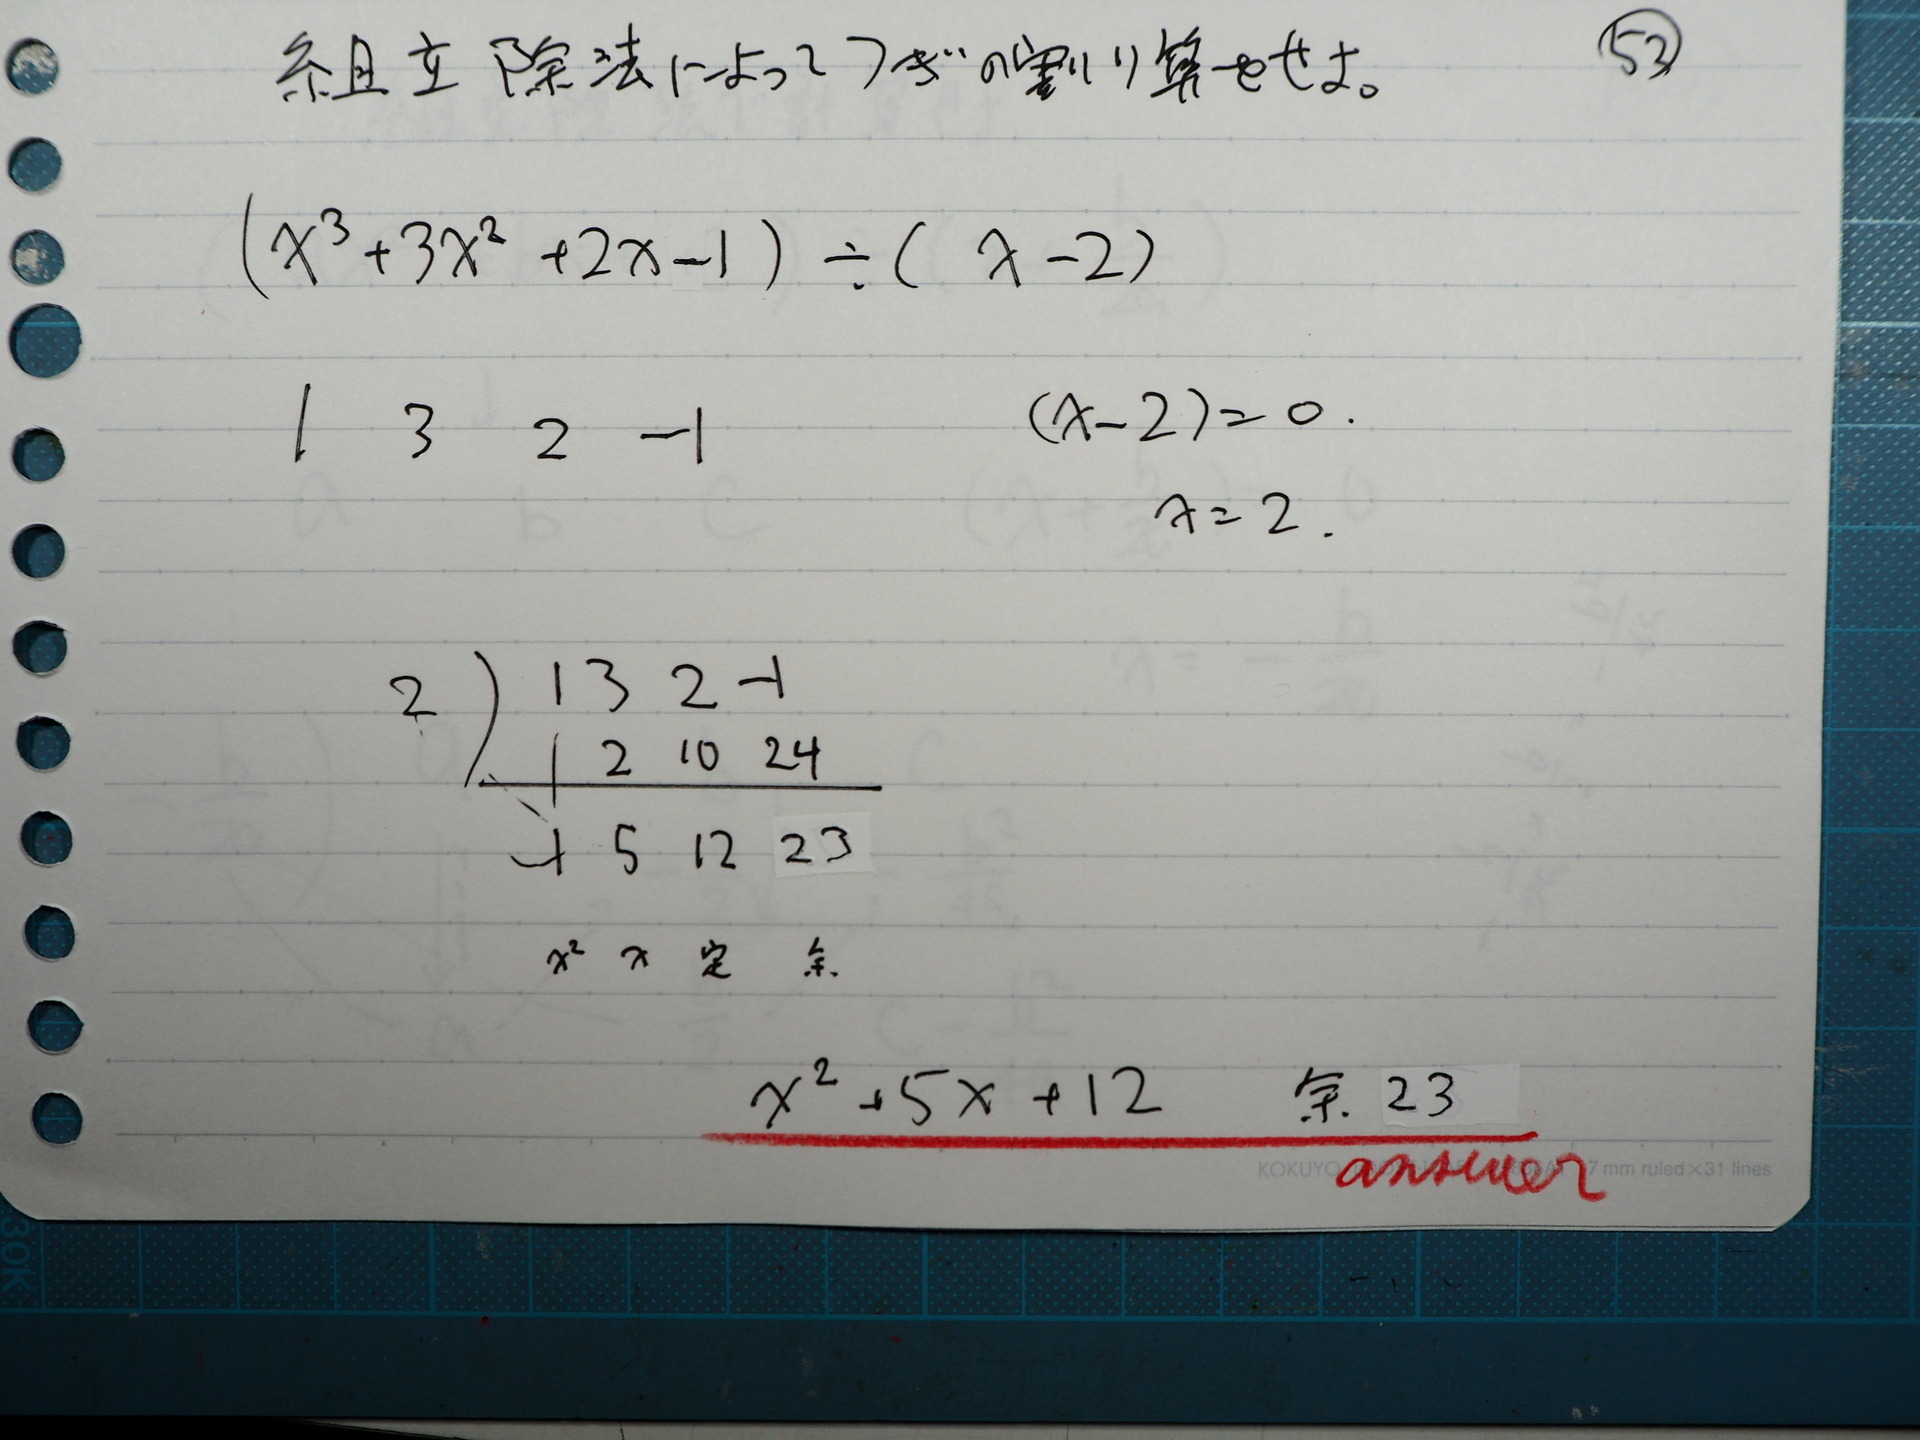 組立除法によってつぎの割り算をせよ。 53
(x³+3x²+2x-1)÷(x-2)
1 3 2 -1 (x-2)=0.
x=2.
2) 1 3 2 -1
2 10 24
1 5 12 23
x² x 定 余.
x²+5x+12 余. 23
answer
mm ruled×31 lines
30K